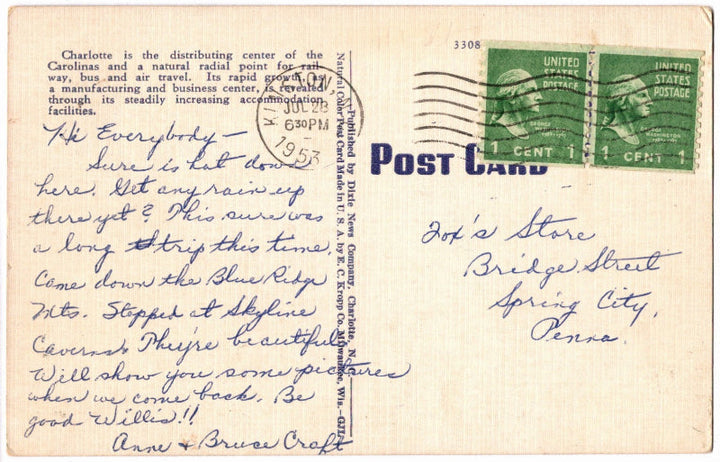 Charlotte is the distributing center of the
Carolinas and a natural radial point for rail-
way, bus and air travel. Its rapid growth, as
a manufacturing and business center, is revealed
through its steadily increasing accommodation
facilities.
Hi Everybody —
Sure is hot down
here. Get any rain up
there yet? This sure was
a long trip this time.
Came down the Blue Ridge
Mts. Stopped at Skyline
Caverns. They're beautiful.
Will show you some pictures
when we come back. Be
good Willis!!
Anne & Bruce Craft
Published by Dixie News Company, Charlotte, N. C.
Natural Color Post Card Made in U. S. A. by E. C. Kropp Co. Milwaukee, Wis.
JUL 28
6 30 PM
1953
3308
UNITED
STATES
POSTAGE
1 CENT 1
UNITED
STATES
POSTAGE
WASHINGTON
1 CENT 1
POST CARD
Fox's Store
Bridge Street
Spring City,
Penna.